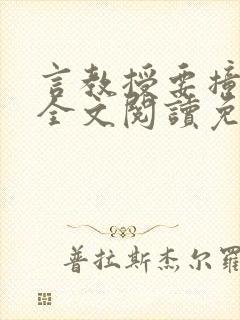 言教授要撞
全文閱讀免
普拉斯杰尔羅